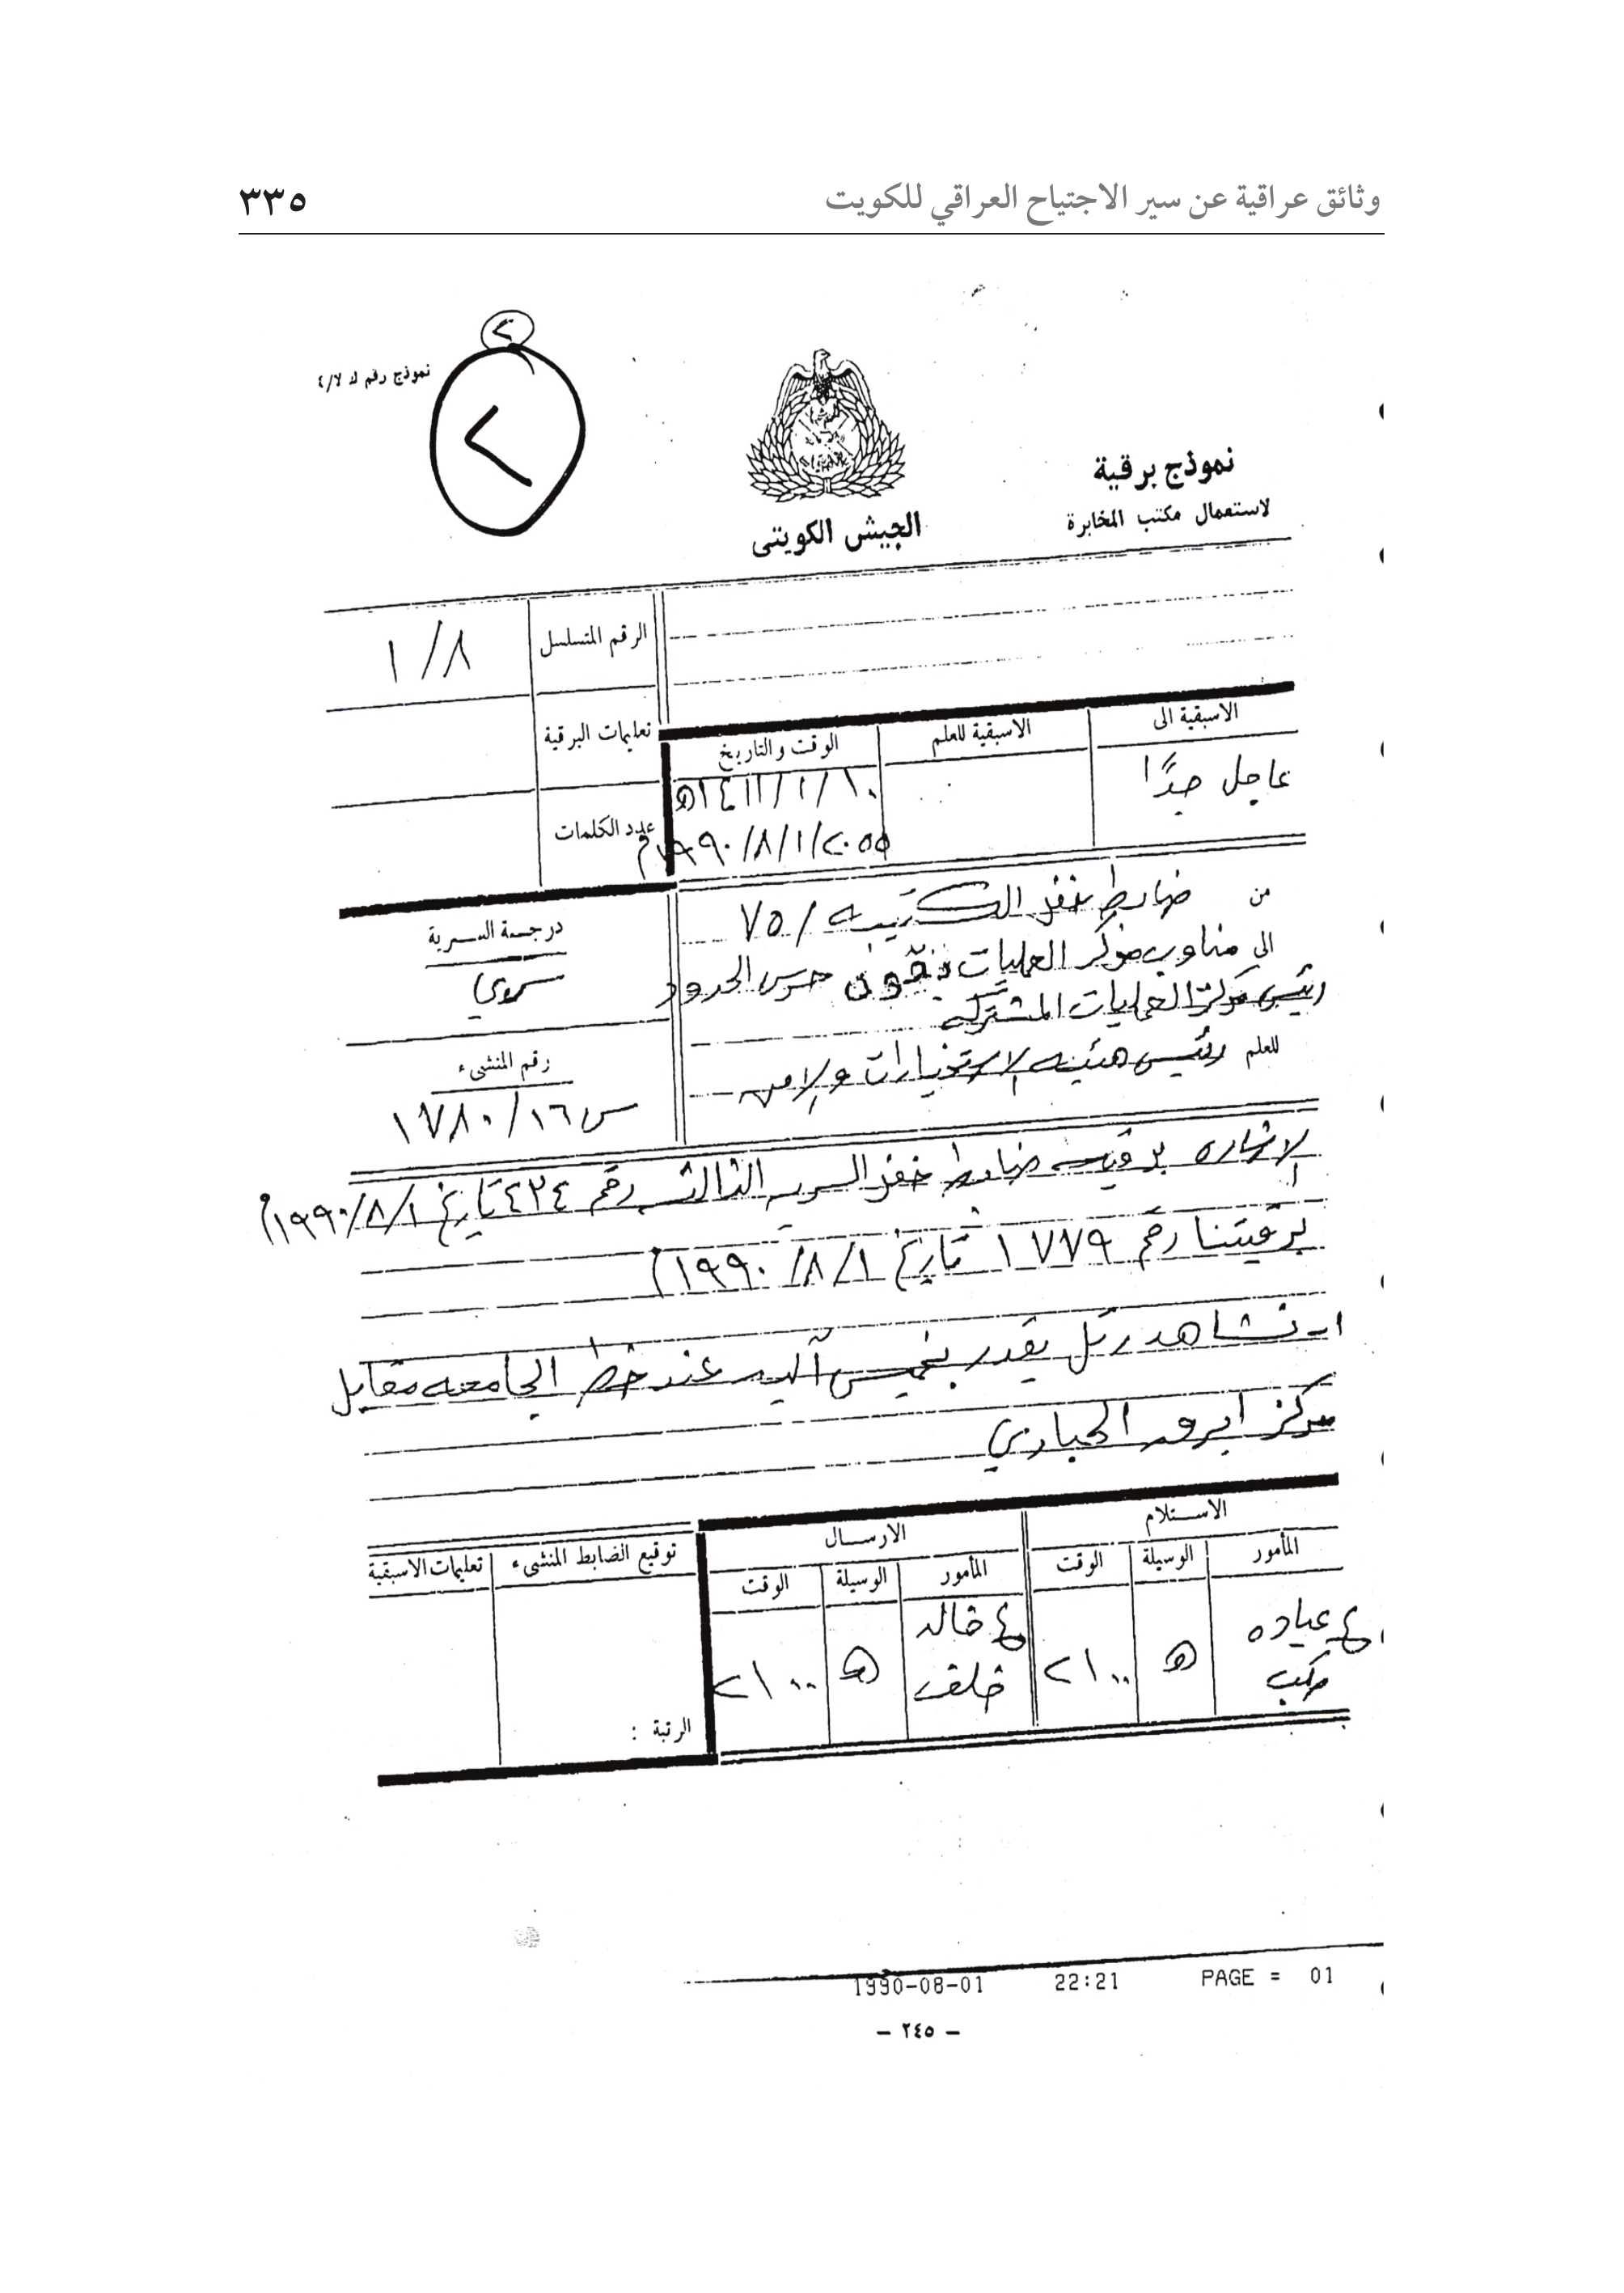 وثائق عراقية عن سير الاجتياح العراقي للكويت
٣٣٥
٢
٢
نموذج رقم ك لا/٤
نموذج برقية
لاستعمال مكتب المخابرة
الجيش الكويتي
الرقم المتسلسل
١/٨
تعليمات البرقية
عدد الكلمات
الاسبقية الى
الاسبقية للعلم
الوقت والتاريخ
عاجل جدًا
١٠/١/١٤١١هـ
٢٠٥٥/١/٨/١٩٩٠م
من ضابط خفر الكتيبه/٧٥
الى مناوب مركز العمليات حرس الحدود
رئيس مركز العمليات المشتركه
للعلم رئيس هيئه الاستخبارات والامن
درجة السرية
سري
رقم المنشىء
س١٦/١٧٨٠
الاشاره برقيه ضابط خفر السريه الثالثه رقم ٤٢٤ تاريخ ١/٨/١٩٩٠م
برقيتنا رقم ١٧٧٩ تاريخ ١/٨/١٩٩٠م
١- نشاهد رتل يقدر بخمس آليه عند خط الجامعه مقابل
مركز ابرق الحباري
الاستلام
الارسال
المأمور
الوسيلة
الوقت
المأمور
الوسيلة
الوقت
توقيع الضابط المنشىء
تعليمات الاسبقية
ع عياده
هـ
٢١٠٠
ع خالد
خلف
هـ
٢١٠٠
الرتبة :
1990-08-01 22:21 PAGE = 01
- ٢٤٥ -